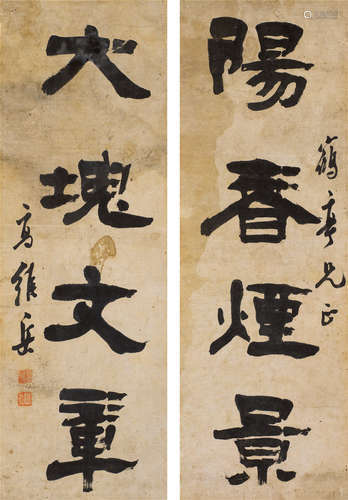 陽春煙景
鶴亭兄正
大塊文章
高維岳